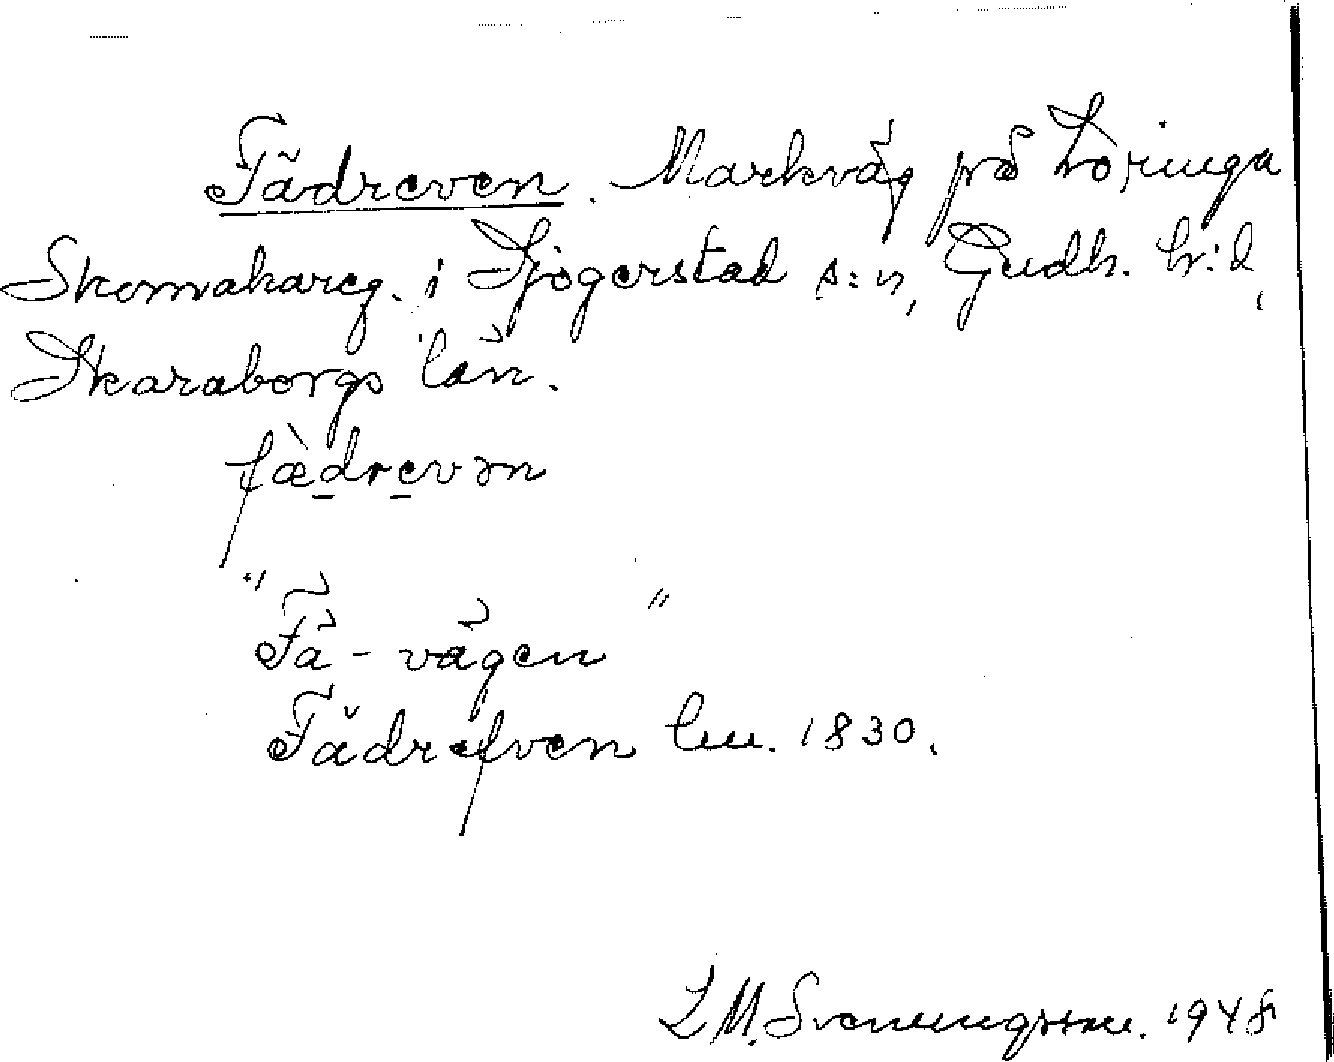 Fädreven. Markväg på Löringa
Skomakareg. i Sjogerstad s:n, Gudh. h:d,
Skaraborgs län.
fæ̀drevən
"Fä-vägen"
Fädrefven lm. 1830.
L M. Svenungsson. 1948